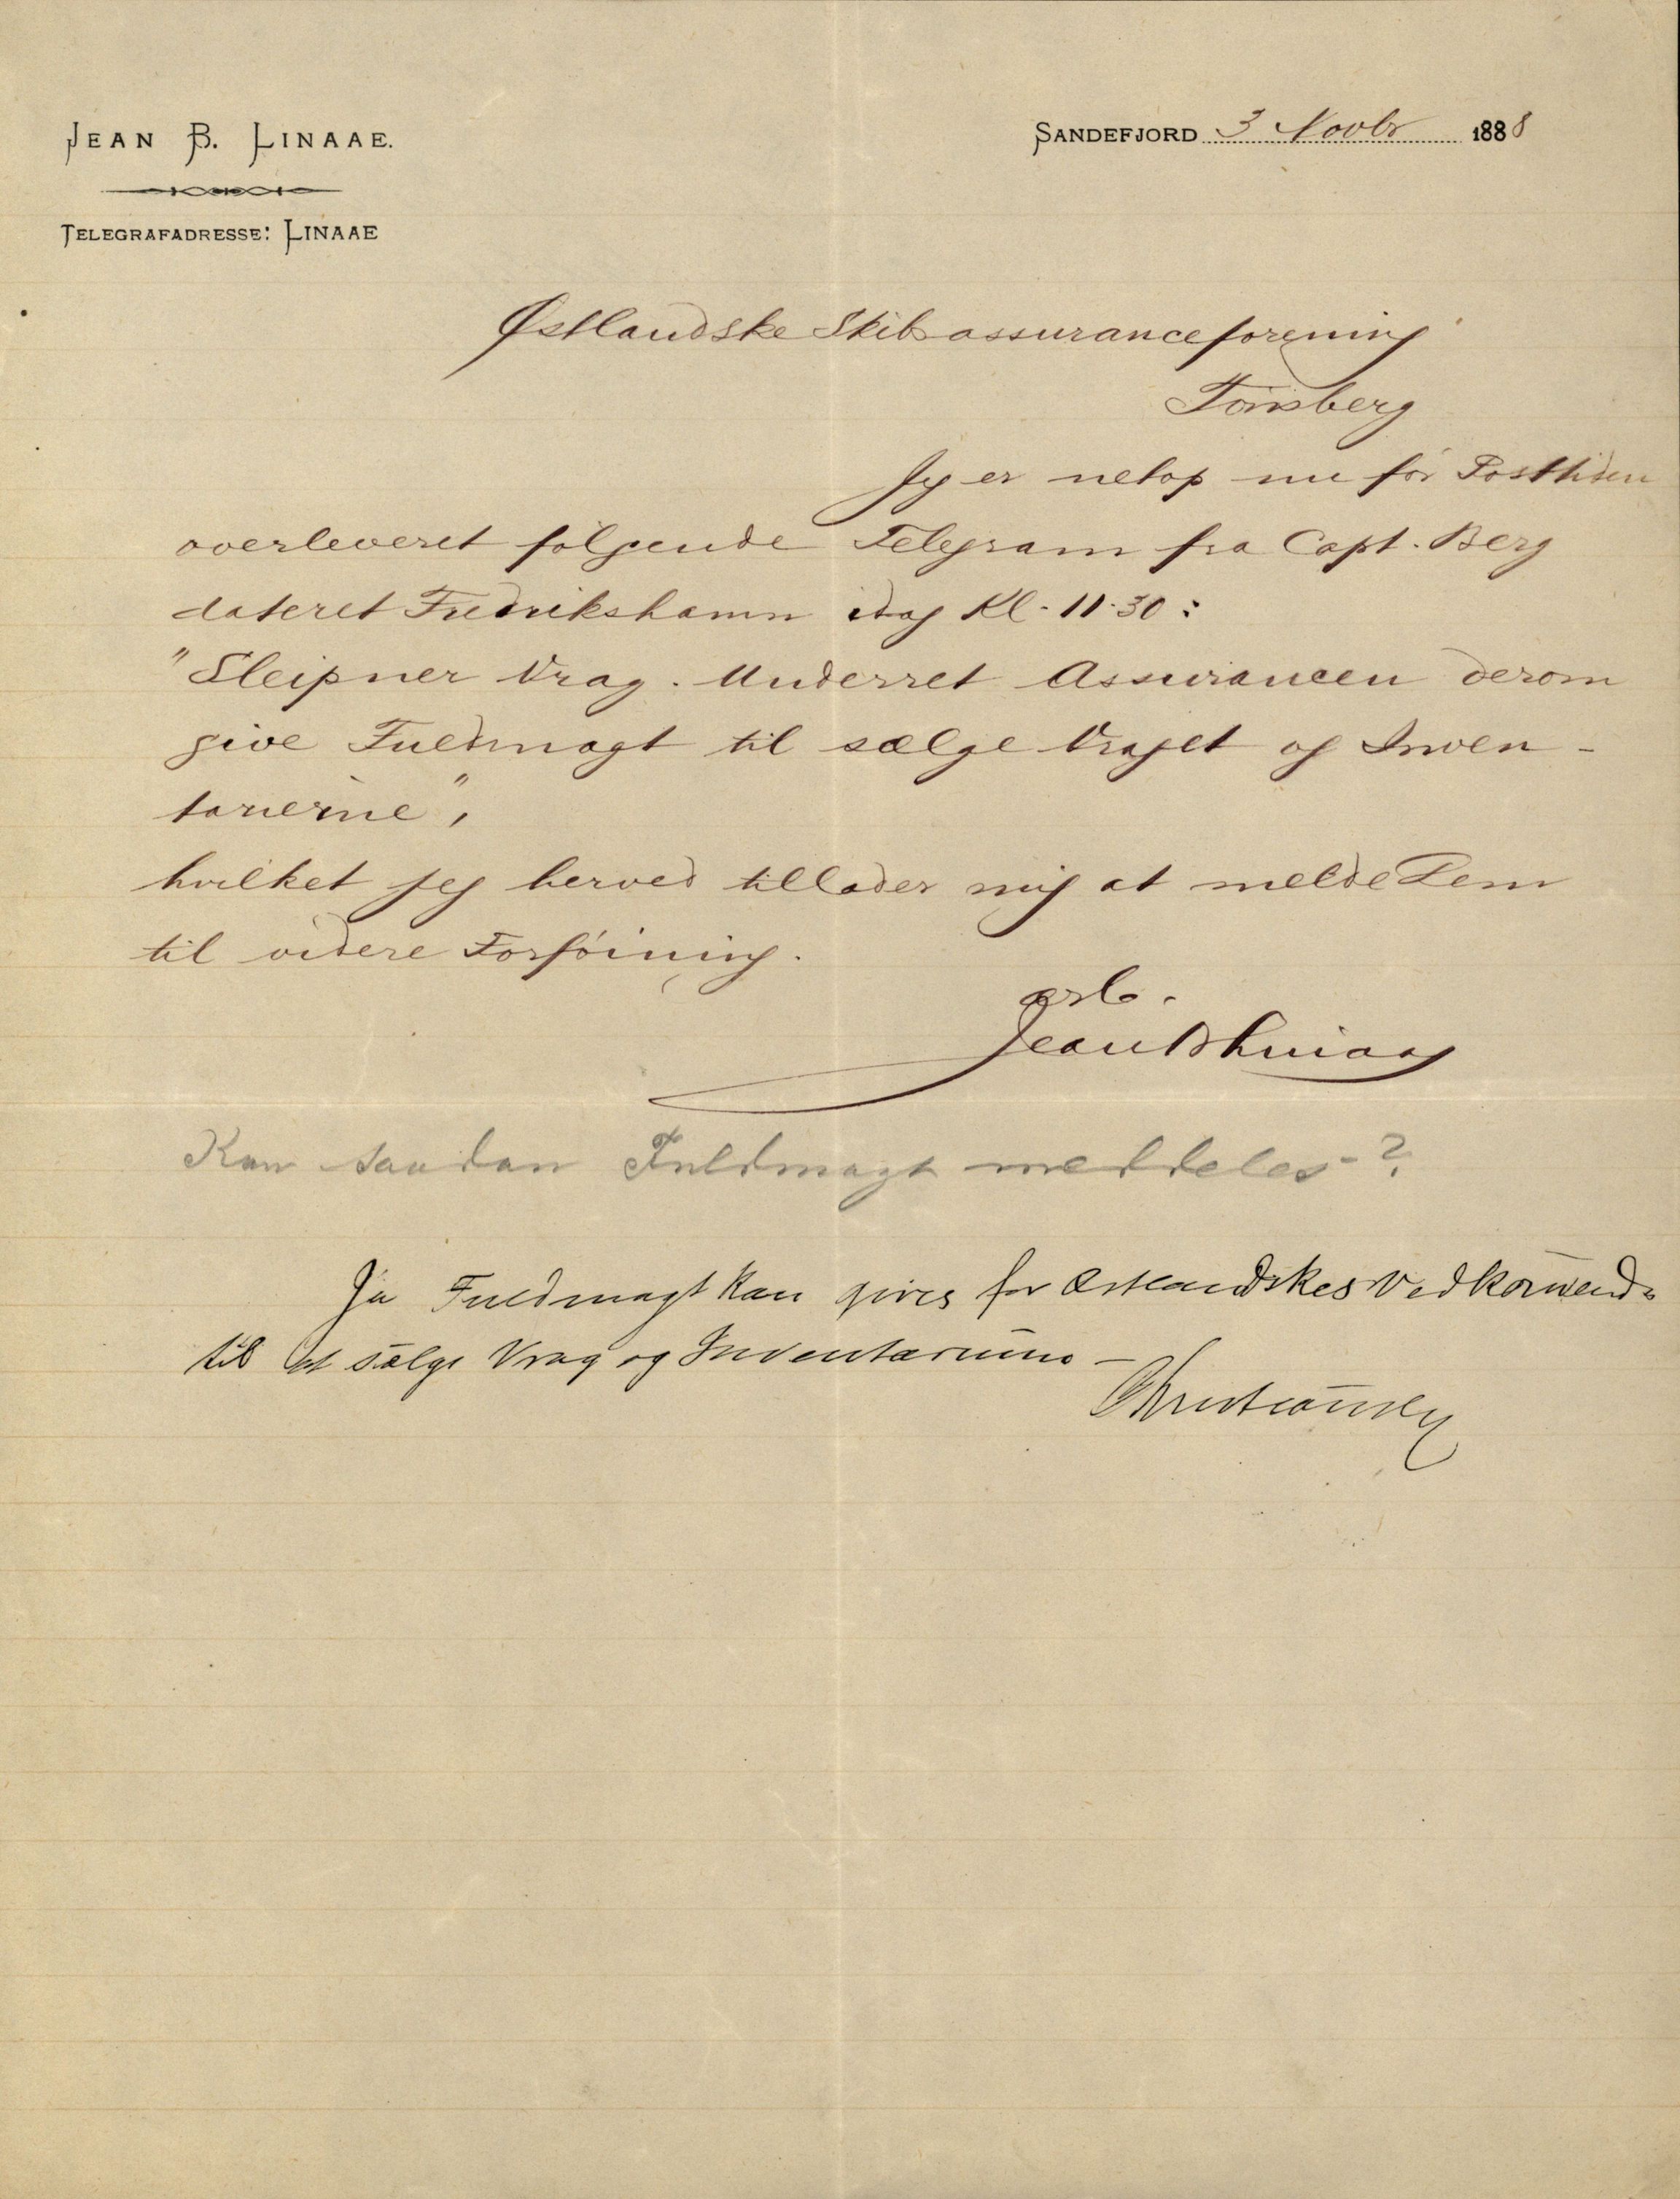 JEAN B. LINAAE.
TELEGRAFADRESSE: LINAAE
SANDEFJORD 3 Novbr 1888
Østlandske Skibsassuranceforening
Tönsberg
Jeg er netop nu før Posttiden
overleveret følgende Telegram fra Capt. Berg
dateret Fredrikshamn idag Kl. 11.30:
"Sleipner Vrag. Underret Assurancen derom
give Fuldmagt til sælge Vraget og Inven-
tarierne",
hvilket jeg herved tillader mig at melde Dem
til videre Forføining.
ærb.
Jean B Linaae
Kan saadan Fuldmagt meddeles-?
Ja Fuldmagt kan gives for Østlandskes Vedkommende
til at sælge Vrag og Inventarierne -